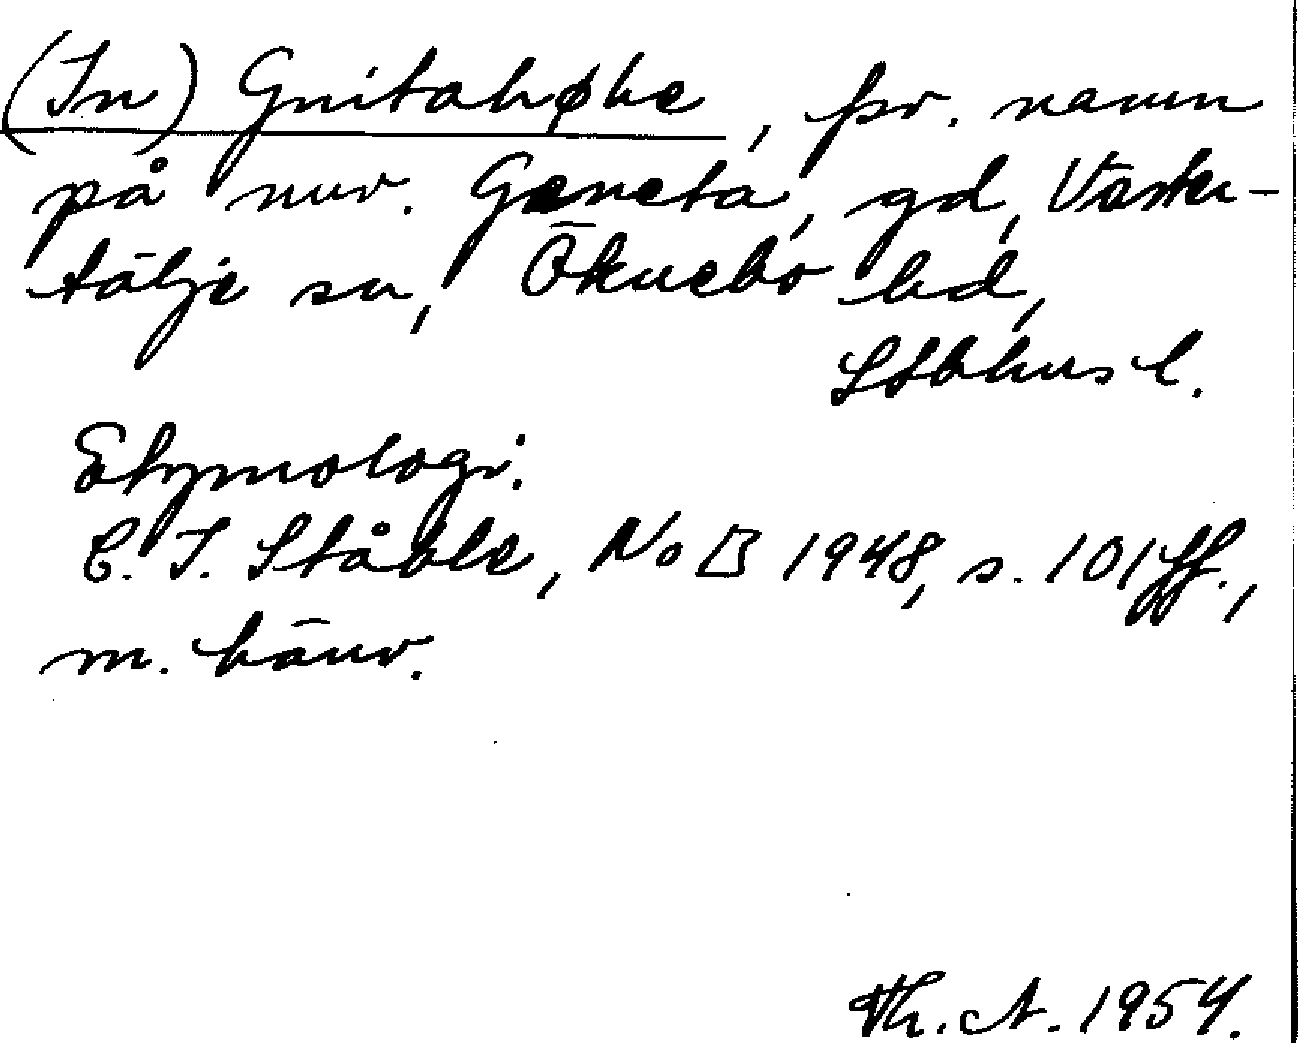 (In) Gnitahøke, fsv. namn
på nuv. Geneta, gd, Väster-
tälje sn, Öknebo hd,
Sthlms l.
Etymologi.
C. I. Ståhle, NoB 1948, s. 101 ff.,
m. hänv.
Th. A. 1954.